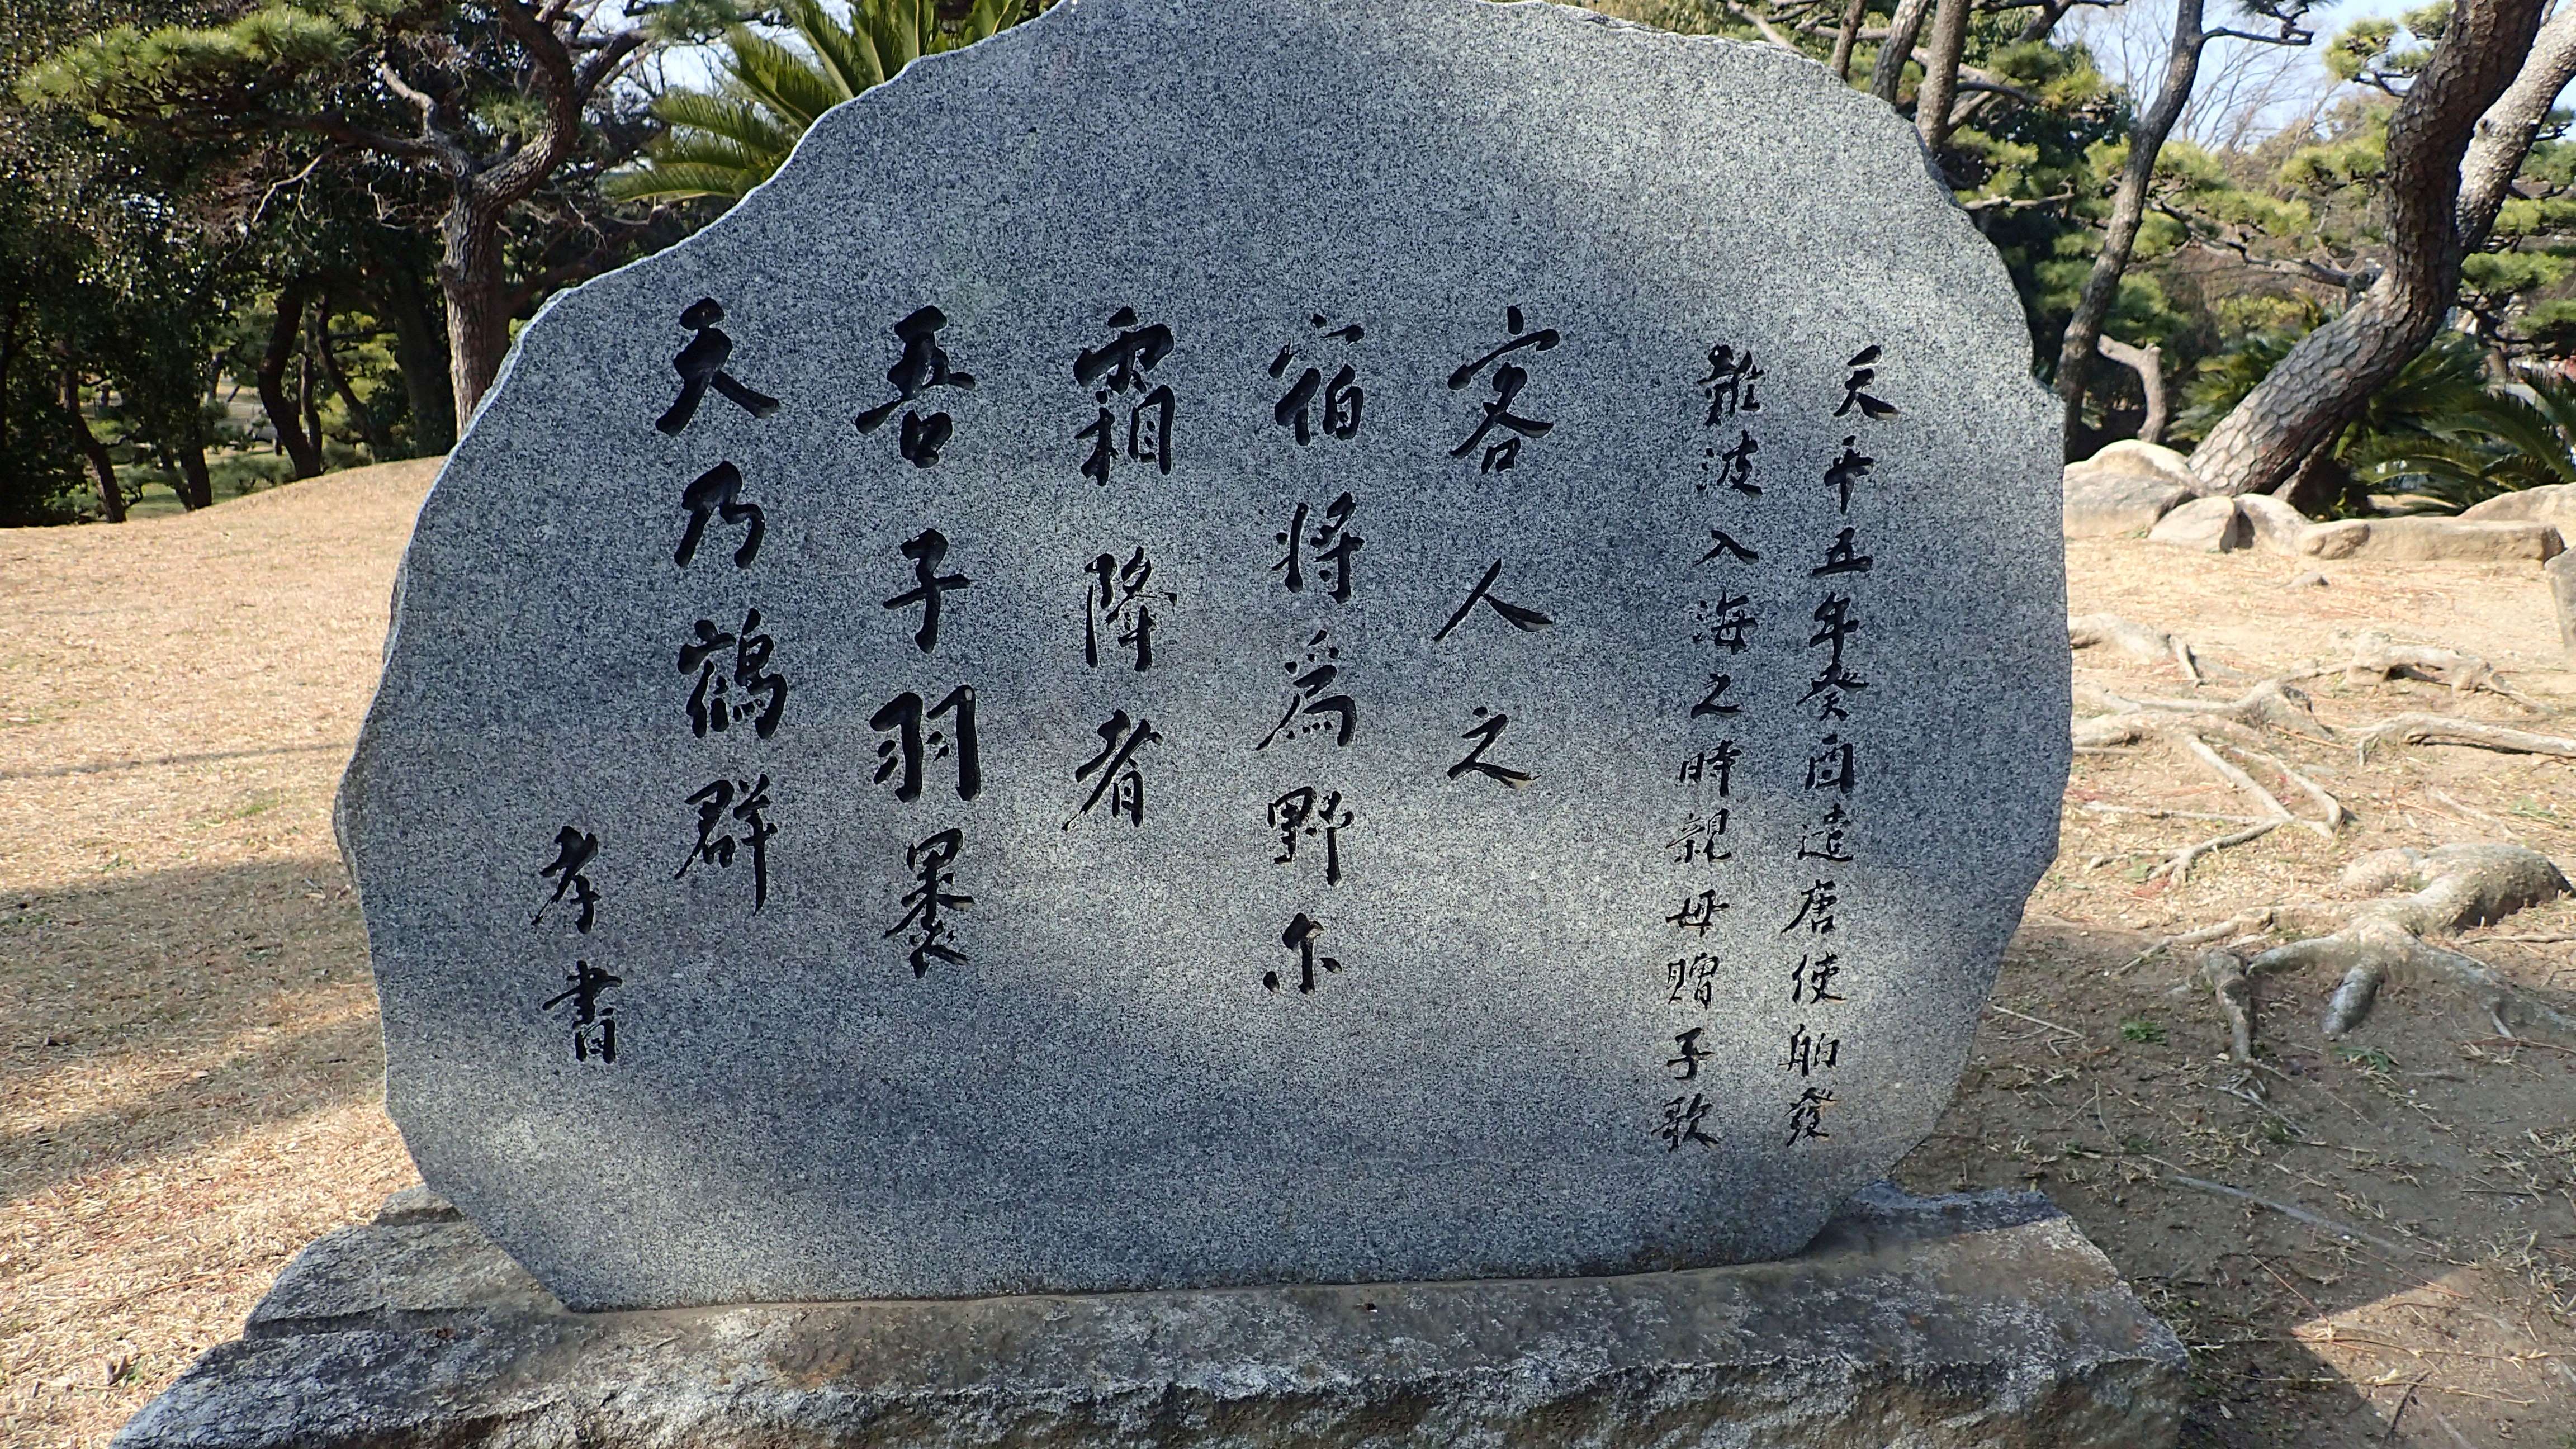 天平五年癸酉遣唐使舶發
難波入海之時親母贈子歌
客人之
宿将為野尓
霜降者
吾子羽褁
天乃鶴群
孝書